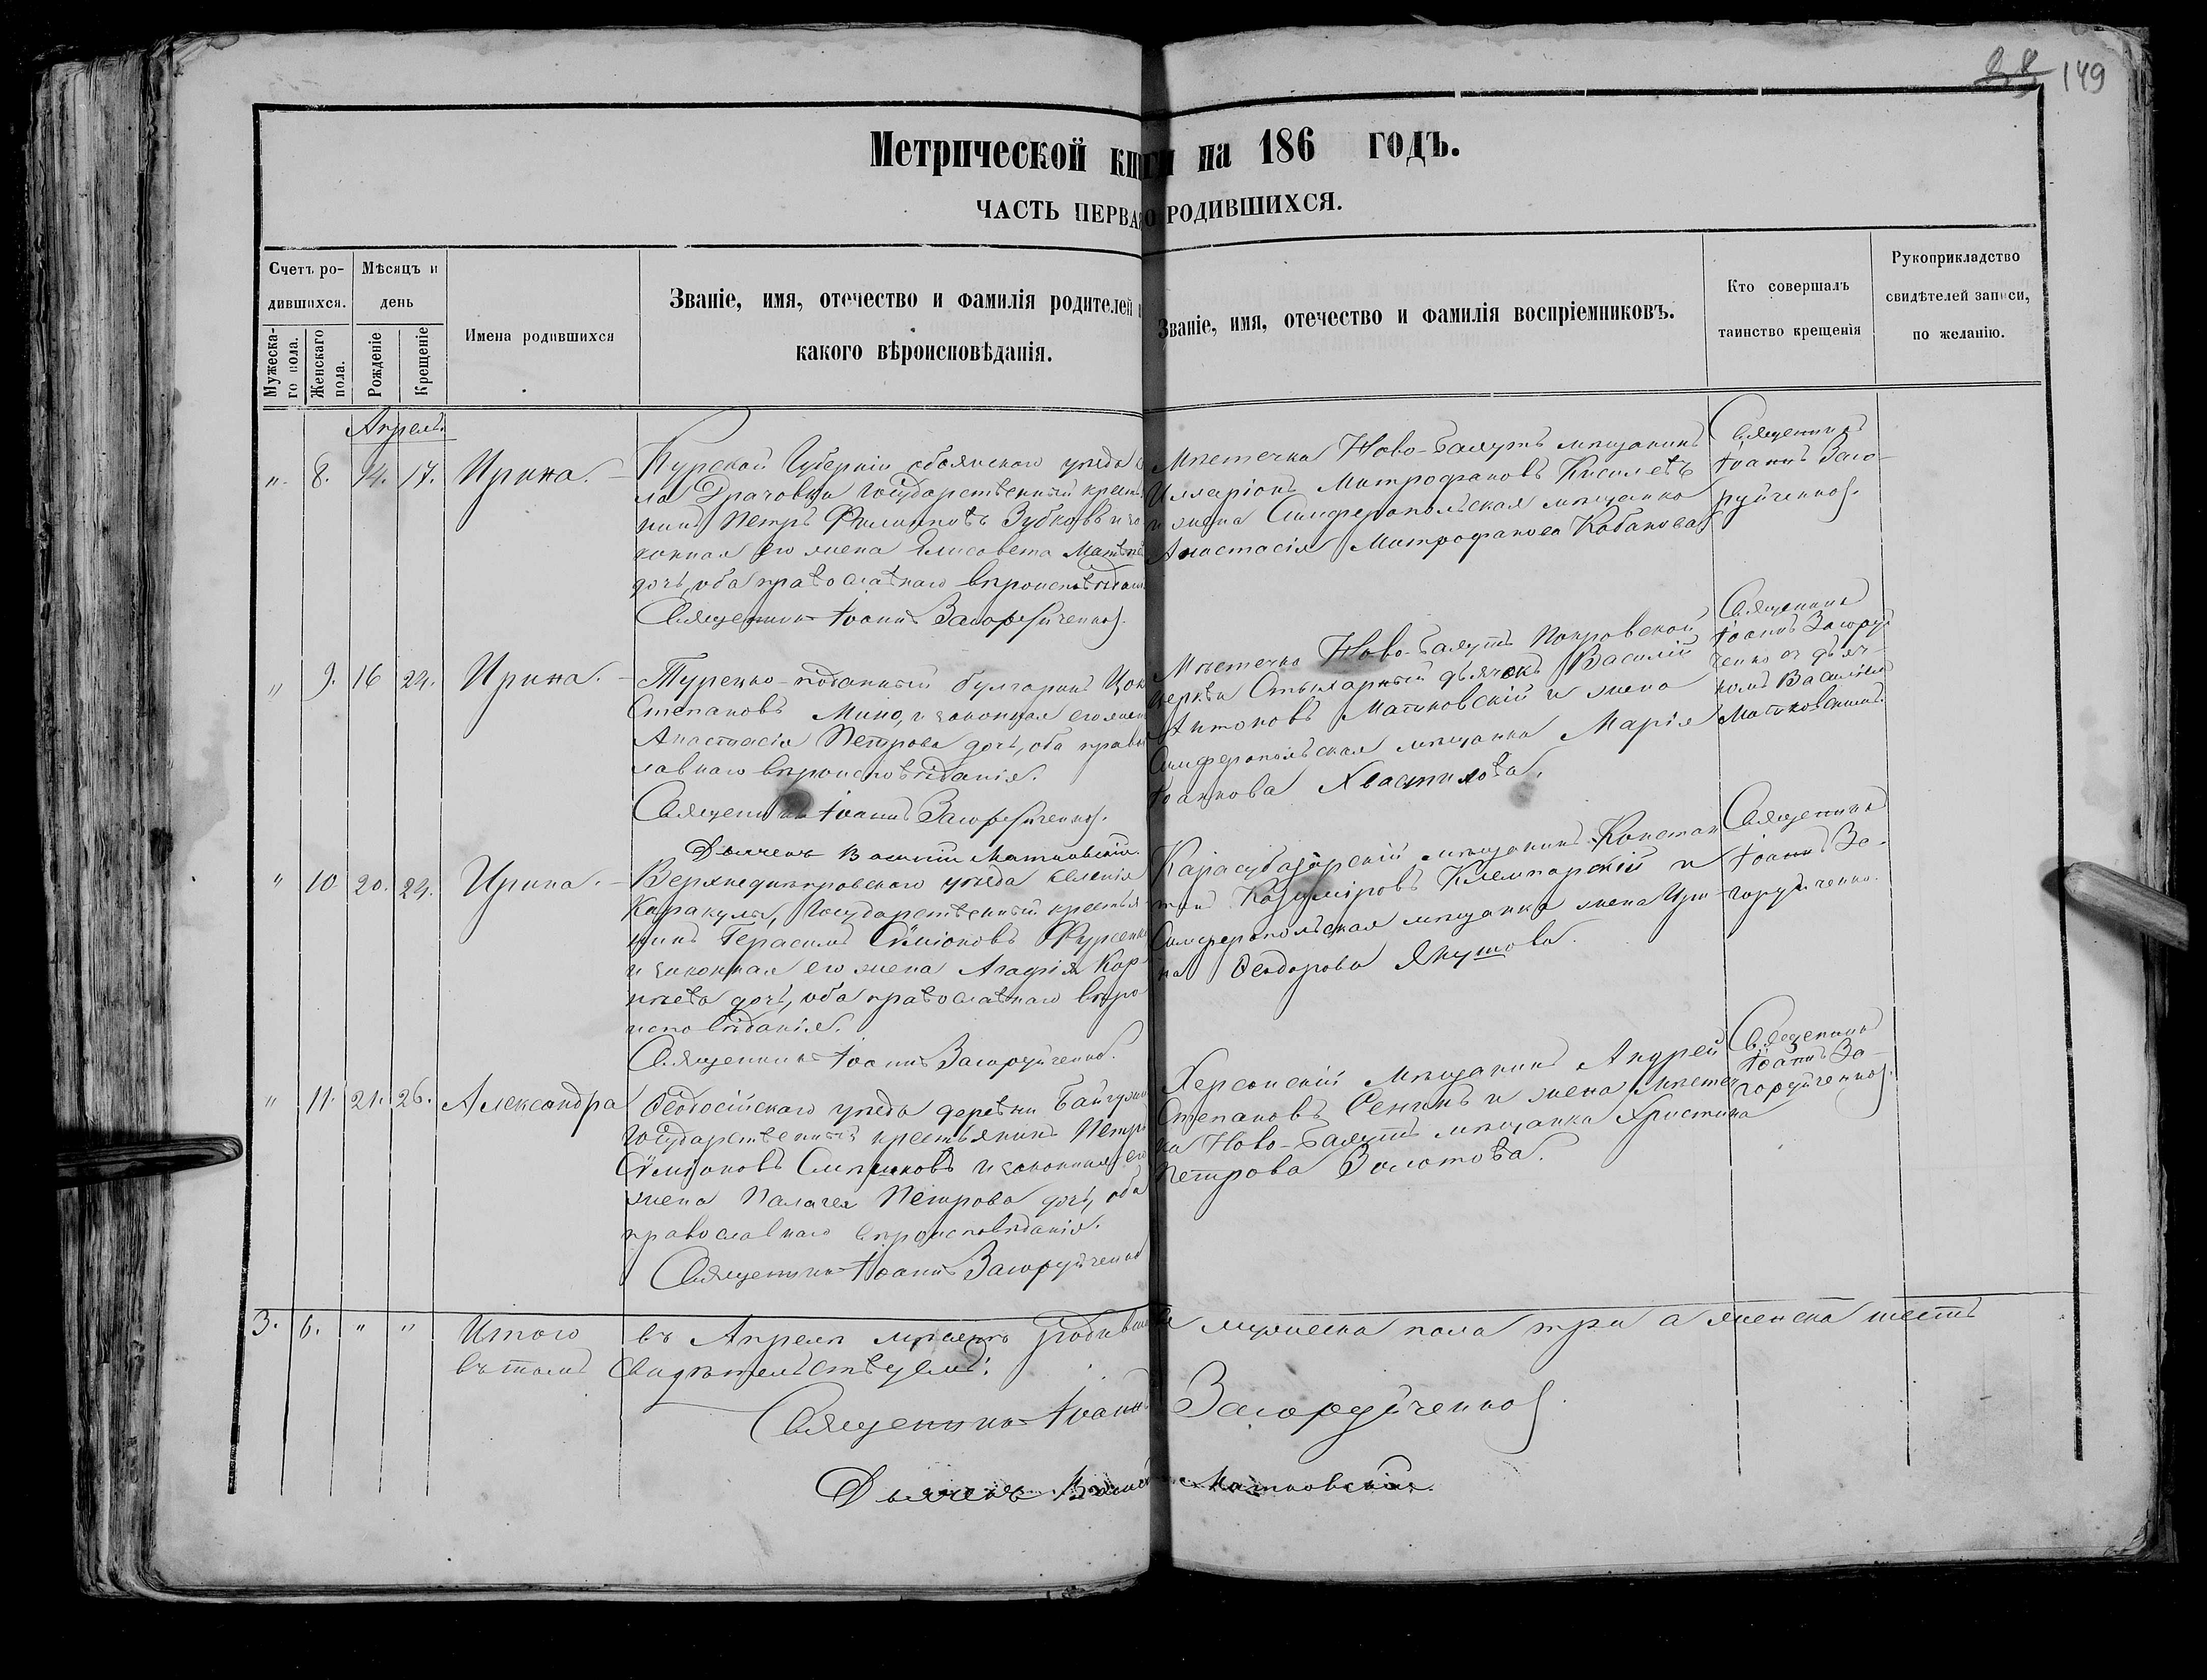 149
Метрической книги на 186 годъ.
ЧАСТЬ ПЕРВАЯ О РОДИВШИХСЯ.
Счетъ ро-
дившихся.
Мужеска-
го пола.
Женскаго
пола.
Мѣсяцъ и
день
Рожденіе
Крещеніе
Имена родившихся
Званіе, имя, отечество и фамилія родителей и
какого вѣроисповѣданія.
Званіе, имя, отечество и фамилія воспріемниковъ.
Кто совершалъ
таинство крещенія
Рукоприкладство
свидѣтелей записи,
по желанію.
Апрель.
" 8. 14. 17. Ирина.
Курской Губерніи обоянскаго уезда
ла Драчовки Государственный кресть
нинъ Петръ Филиповъ Зубковъ и за
конная его жена Елисавета Матвѣе
дочь, оба православнаго вѣроисповѣдан
Священникъ Іоаннъ Загоруйченко.
Мѣстечка Ново-Баяутъ мѣщанинъ
Илларіонъ Митрофановъ Киселевъ
и жена Симферопольская мѣщанка
Анастасія Митрофанова Кабанова
Священникъ
Іоаннъ Заго-
руйченко.
" 9. 16 24. Ирина.
Турецко-подданный булгаринъ
Степановъ Мино, и законная его жен
Анастасія Петрова дочь, оба правос
лавнаго вѣроисповѣданія.
Священникъ Іоаннъ Загоруйченко.
Дьячекъ Василій Матковскій.
Мѣстечка Ново-Баяутъ Покровской
церкви Стихарный дьячокъ Василій
Антоновъ Матковскій и жена
Симферопольская мѣщанка Марія
Іоаннова Хвастилова.
Священникъ
Іоаннъ Загоруй
ченко съ дьяч-
комъ Василіемъ
Матковскимъ.
" 10. 20. 24. Ирина.
Верхнеднепровскаго уезда селенія
Каракулы, Государственный крестья-
нинъ Герасимъ Сѵміоновъ Фурсенко
и законная его жена Агафія Кор-
нѣева дочь, оба православнаго вѣро
исповѣданія.
Священникъ Іоаннъ Загоруйченко.
Карасубазарскій мѣщанинъ Констан
тин Казиміровъ Клемпарскій и
Симферопольская мѣщанка жена Ири-
на Ѳеодорова Якушова.
Священникъ
Іоаннъ За-
горуйченко.
" 11. 21. 26. Александра
Ѳеодосійскаго уезда деревни
Государственный крестьянинъ Петръ
Сѵміоновъ и законная его
жена Палагея Петрова дочь, оба
православнаго вѣроисповѣданія.
Священникъ Іоаннъ Загоруйченко
Херсонскій Мѣщанинъ Андрей
Степановъ Сенинъ и жена Мѣстеч
ка Ново-Баяутъ мѣщанка Христина
Петрова Золотова.
Священникъ
Іоаннъ За-
горуйченко.
3. 6. " " Итого въ Апрелѣ мѣсяцѣ родившихся мужеска пола три а женска шесть
въ томъ свидѣтельствуемъ:
Священникъ Іоаннъ Загоруйченко.
Дьячекъ Василій Матковскій.